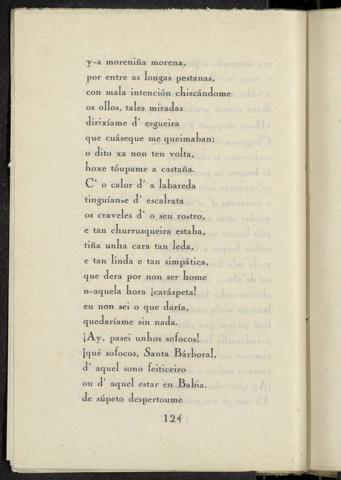 y-a moreniña morena,
por entre as longas pestanas,
con mala intención chiscándome
os ollos, tales miradas
dirixíame d' esgueira
que cuáseque me queimaban;
o dito xa non ten volta,
hoxe tóupame a castaña.
C' o calor d' a labareda
tinguíanse d' escalrata
os craveles d' o seu rostro,
e tan churrusqueira estaba,
tiña unha cara tan leda,
e tan linda e tan simpática,
que dera por non ser home
n-aquela hora ¡caráspeta!
eu non sei o que daría,
quedaríame sin nada.
¡Ay, pasei unhos sofocos!
¡qué sofocos, Santa Bárbora!,
d' aquel sono feiticeiro
ou d' aquel estar en Babia,
de súpeto despertoume
124